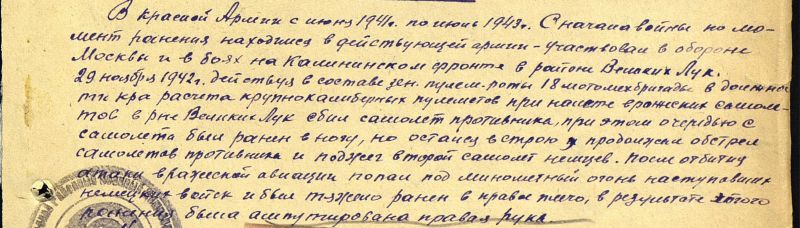 В красной Армии с июня 1941г. по июнь 1943г. С начала войны на мо-
мент ранения находился в действующей армии - участвовал в обороне
Москвы и в боях на Калининском фронте в районе Великих Лук.
29 ноября 1942г. действуя в составе зен. пулем. роты 18 мотомехбригады в должнос
ти к-ра расчета крупнокалиберных пулеметов при налете вражеских самоле-
тов в р-не Великих Лук сбил самолет противника, при этом очередью с
самолета был ранен в ногу, но остался в строю и продолжал обстрел
самолетов противника и поджег второй самолет немцев. После отбития
атаки вражеской авиации попал под минометный огонь наступавших
немецких войск и был тяжело ранен в правое плечо, в результате этого
ранения была ампутирована правая рука.